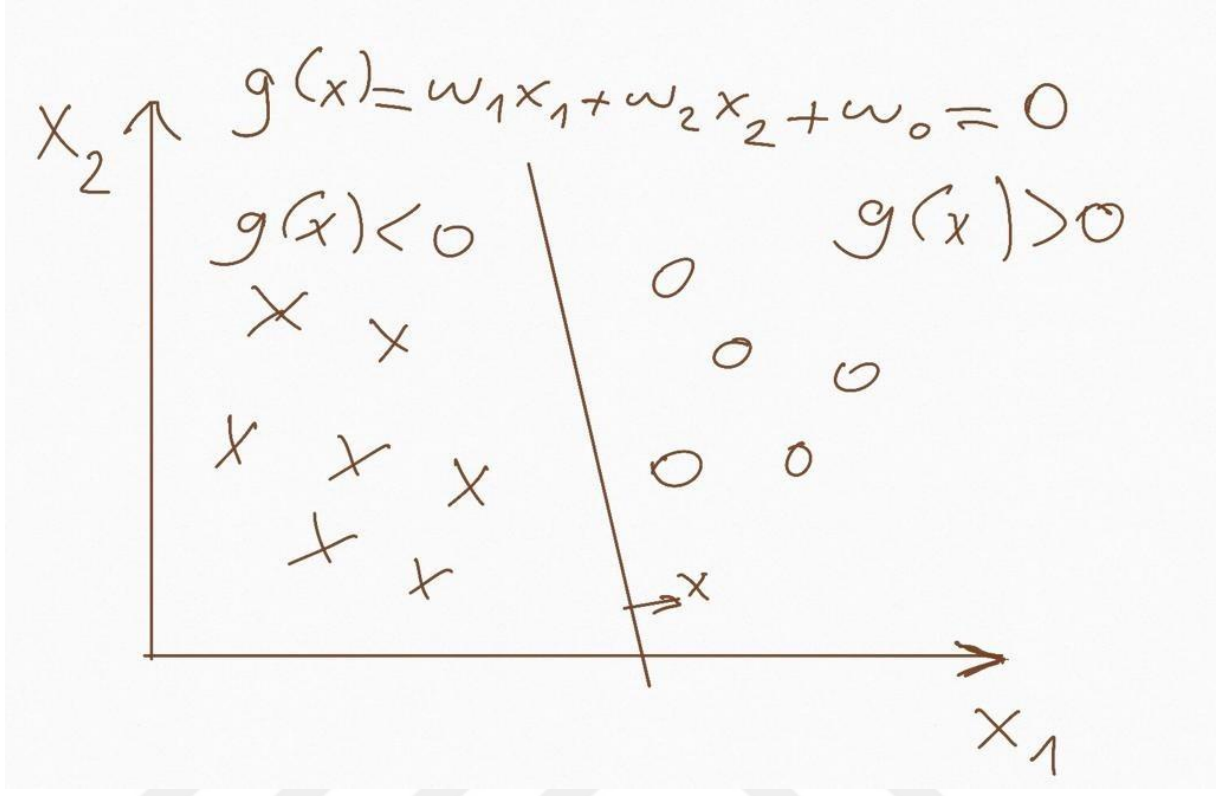 g(x)=w₁x₁+w₂x₂+w₀=0
x₂
g(x)<0
g(x)>0
x
x₁